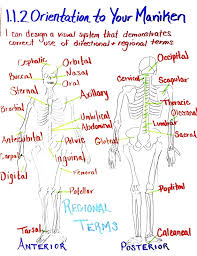 1.1.2 Orientation to Your Maniken
I can design a visual system that demonstrates
correct use of directional + regional terms
Cephalic
Orbital
Buccal
Nasal
Oral
Sternal
Axillary
Brachial
Umbilical
Abdominal
Antecubital
Pelvic
Carpal
Inguinal
Digital
Femoral
Patellar
Tarsal
ANTERIOR
REGIONAL
TERMS
Occipital
Cervical
Scapular
Thoracic
Olecranal
Lumbar
Gluteal
Sacral
Popliteal
Calcaneal
POSTERIOR